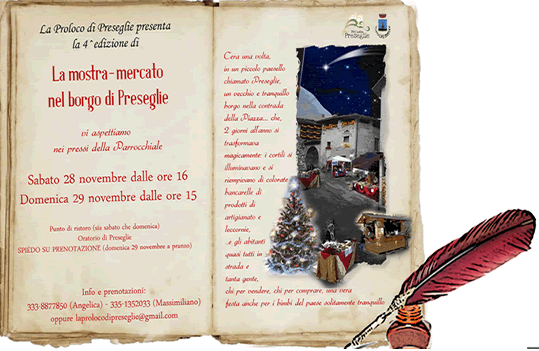 La Proloco di Preseglie presenta
la 4^edizione di
La mostra-mercato
nel borgo di Preseglie
vi aspettiamo
nei pressi della Parrocchiale
Sabato 28 novembre dalle ore 16
Domenica 29 novembre dalle ore 15
Punto di ristoro (sia sabato che domenica)
Oratorio di Preseglie
SPIEDO SU PRENOTAZIONE (domenica 29 novembre a pranzo)
Info e prenotazioni:
333-8877850 (Angelica) - 335-1352033 (Massimiliano)
oppure laprolocodipreseglie@gmail.com
Preseglie
C'era una volta,
in un piccolo paesello
chiamato Preseglie,
un vecchio e tranquillo
borgo nella contrada
della Piazza... che,
2 giorni all'anno si
trasformava
magicamente: i cortili si
illuminavano e si
riempivano di colorate
bancarelle di
prodotti di
artigianato e
leccornie,
..e gli abitanti
quasi tutti in
strada e
tanta gente,
chi per vendere, chi per comprare, una vera
festa anche per i bimbi del paese solitamente tranquillo